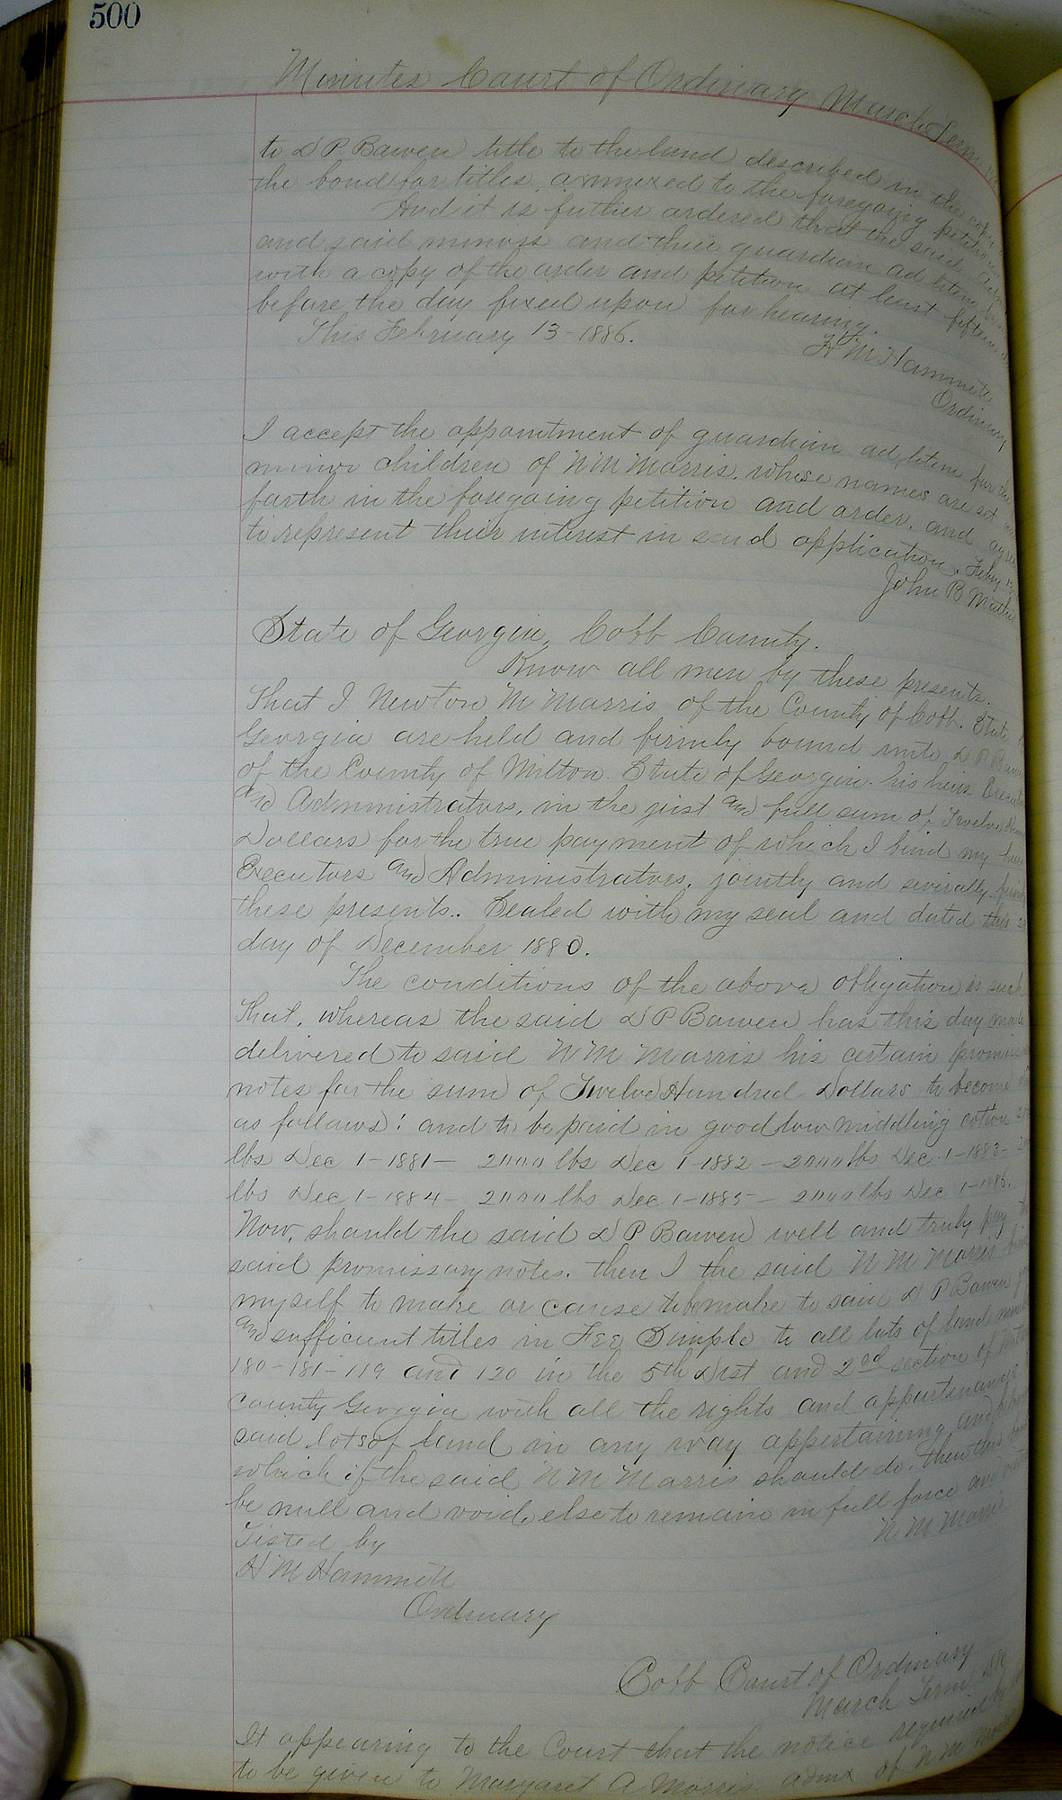 500
Minutes Court of Ordinary March Term
to D P. Bowen title to the land described in the
the bond for titles, annexed to the foregoing petition
And it is futher ordered that the said
and said minors and their guardian ad litem
with a copy of the order and petition at least fifteen
before the day fixed upon for hearing.
This February 13-1886.
H M Hammett
Ordinary
I accept the appointment of guardian ad litem for the
minor children of N M Morris, whose names are set
forth in the foregoing petition and order, and agree
to represent their interest in said application. Feby 13
John B
State of Georgia, Cobb County.
Know all men by these presents.
That I Newton M Morris of the County of Cobb. State
Georgia are held and firmly bound unto D P Bowen
of the County of Milton. State of Georgia. his heirs
and Administrators, in the just and full sum of Twelve
Dollars for the true payment of which I bind my heirs
Executors and Administrators, jointly and severally
these presents. Sealed with my seal and dated this
day of December 1880.
The conditions of the above obligation is such
That, whereas the said D P Bowen has this day made
delivered to said N M Morris his certain
notes for the sum of Twelve Hundred Dollars to become
as follows: and to be paid in good low middling cotton
lbs Dec 1-1881- 2000 lbs Dec 1-1882 - 2000 lbs Dec 1-1883-
lbs Dec 1-1884- 2000 lbs Dec 1-1885- 2000 lbs Dec 1-1886.
Now, should the said D P Bowen well and truly pay
said promissory notes. then I the said N M Morris
myself to make or cause to be make to said D P Bowen
and sufficient titles in Fee Simple to all lots of land
180-181-119 and 120 in the 5th Dist and 2nd section of
County Georgia with all the rights and
said lots of land in any way appertaining
which if the said N M Morris should do. then this
be null and void, else to remain in full force and
N M Morris
Tisted by
H M Hammett
Ordinary
Cobb Court of Ordinary
March Term
It appearing to the Court that the notice required
to be given to Margaret A Morris admx of N M